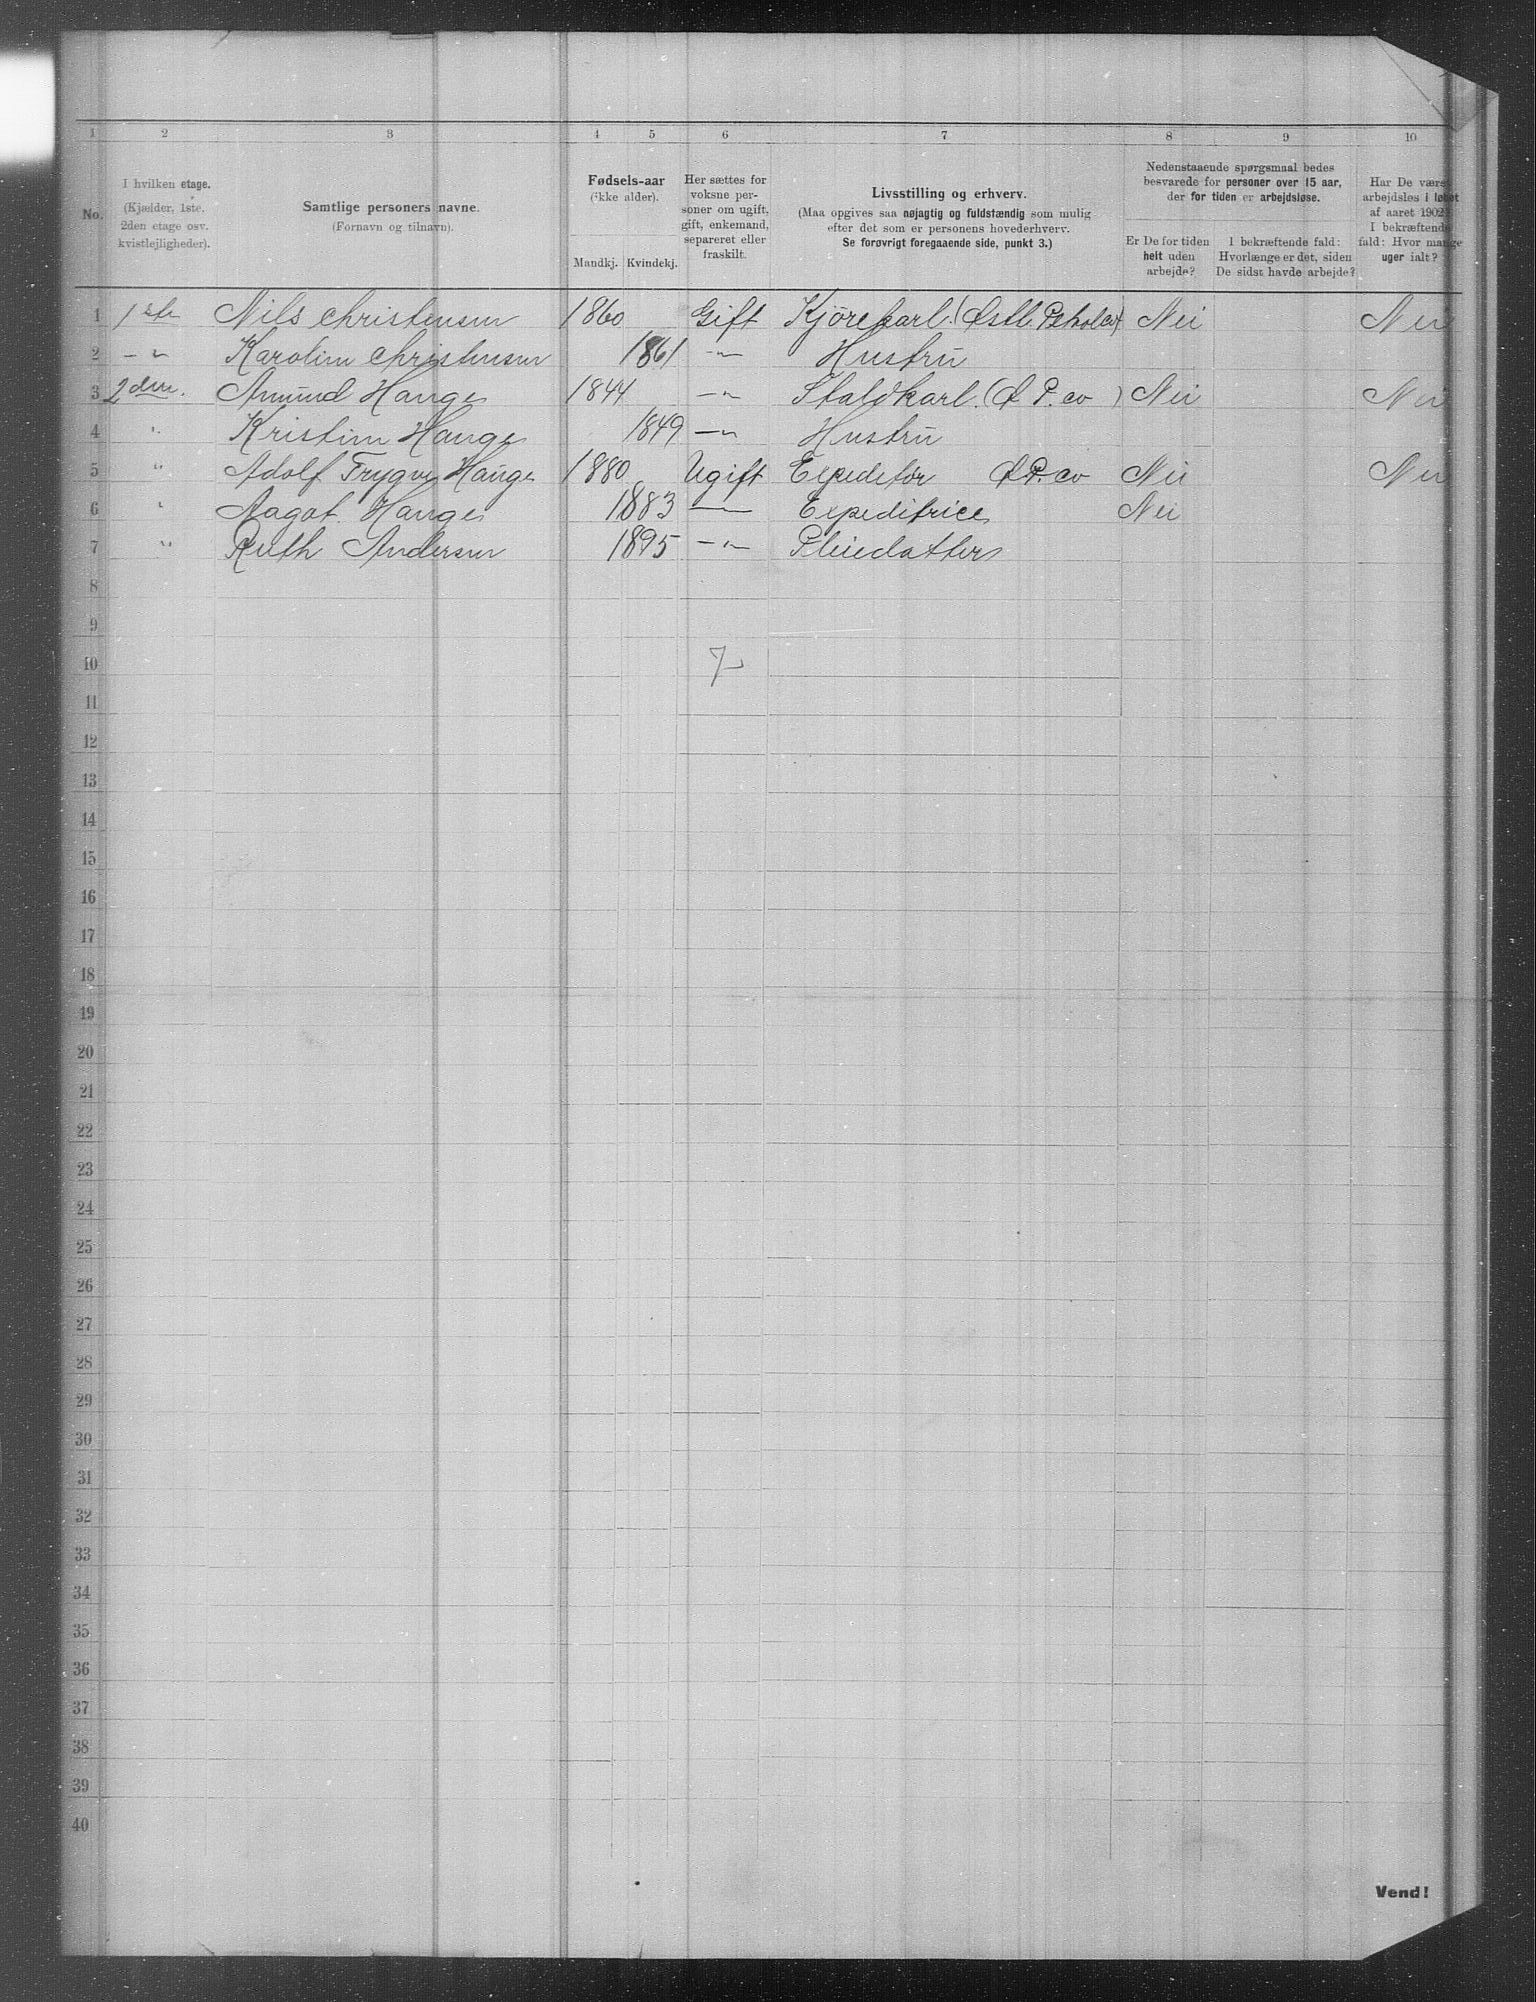 1 2 3 4 5 6 7 8 9 10
No.
I hvilken etage.
(Kjælder, 1ste.
2den etage osv.
kvistlejligheder).
Samtlige personers navne.
(Fornavn og tilnavn).
Fødsels-aar
(ikke alder).
Mandkj. Kvindekj.
Her sættes for
voksne per-
soner om ugift,
gift, enkemand,
separeret eller
fraskilt.
Livsstilling og erhverv.
(Maa opgives saa nøjagtig og fuldstændig som mulig
efter det som er personens hovederhverv.
Se forøvrigt foregaaende side, punkt 3.)
Nedenstaaende spørgsmaal bedes
besvarede for personer over 15 aar,
der for tiden er arbejdsløse.
Er De for tiden
helt uden
arbejde?
I bekræftende fald:
Hvorlænge er det, siden
De sidst havde arbejde?
Har De været
arbejdsløs i løbet
af aaret 1902?
I bekræftende
fald: Hvor mange
uger ialt?
1 1ste Nils Christensen 1860 Gift Kjørekarl (Østl. Nei Nei
2 -"- Karoline Christensen 1861 -"- Hustru
3 2den. Amund Hauge 1844 -"- Staldkarl. (Ø P. co) Nei Nei
4 " Kristine Hauge 1849 -"- Hustru
5 " Adolf Trygve Hauge 1880 Ugift Expeditør Ø P. co Nei Nei
6 " Aagot Hauge 1883 -"- Expeditrice Nei
7 " Ruth Andersen 1895 -"- Pleiedatter
8
9
10 7
11
12
13
14
15
16
17
18
19
20
21
22
23
24
25
26
27
28
29
30
31
32
33
34
35
36
37
38
39
40
Vend!